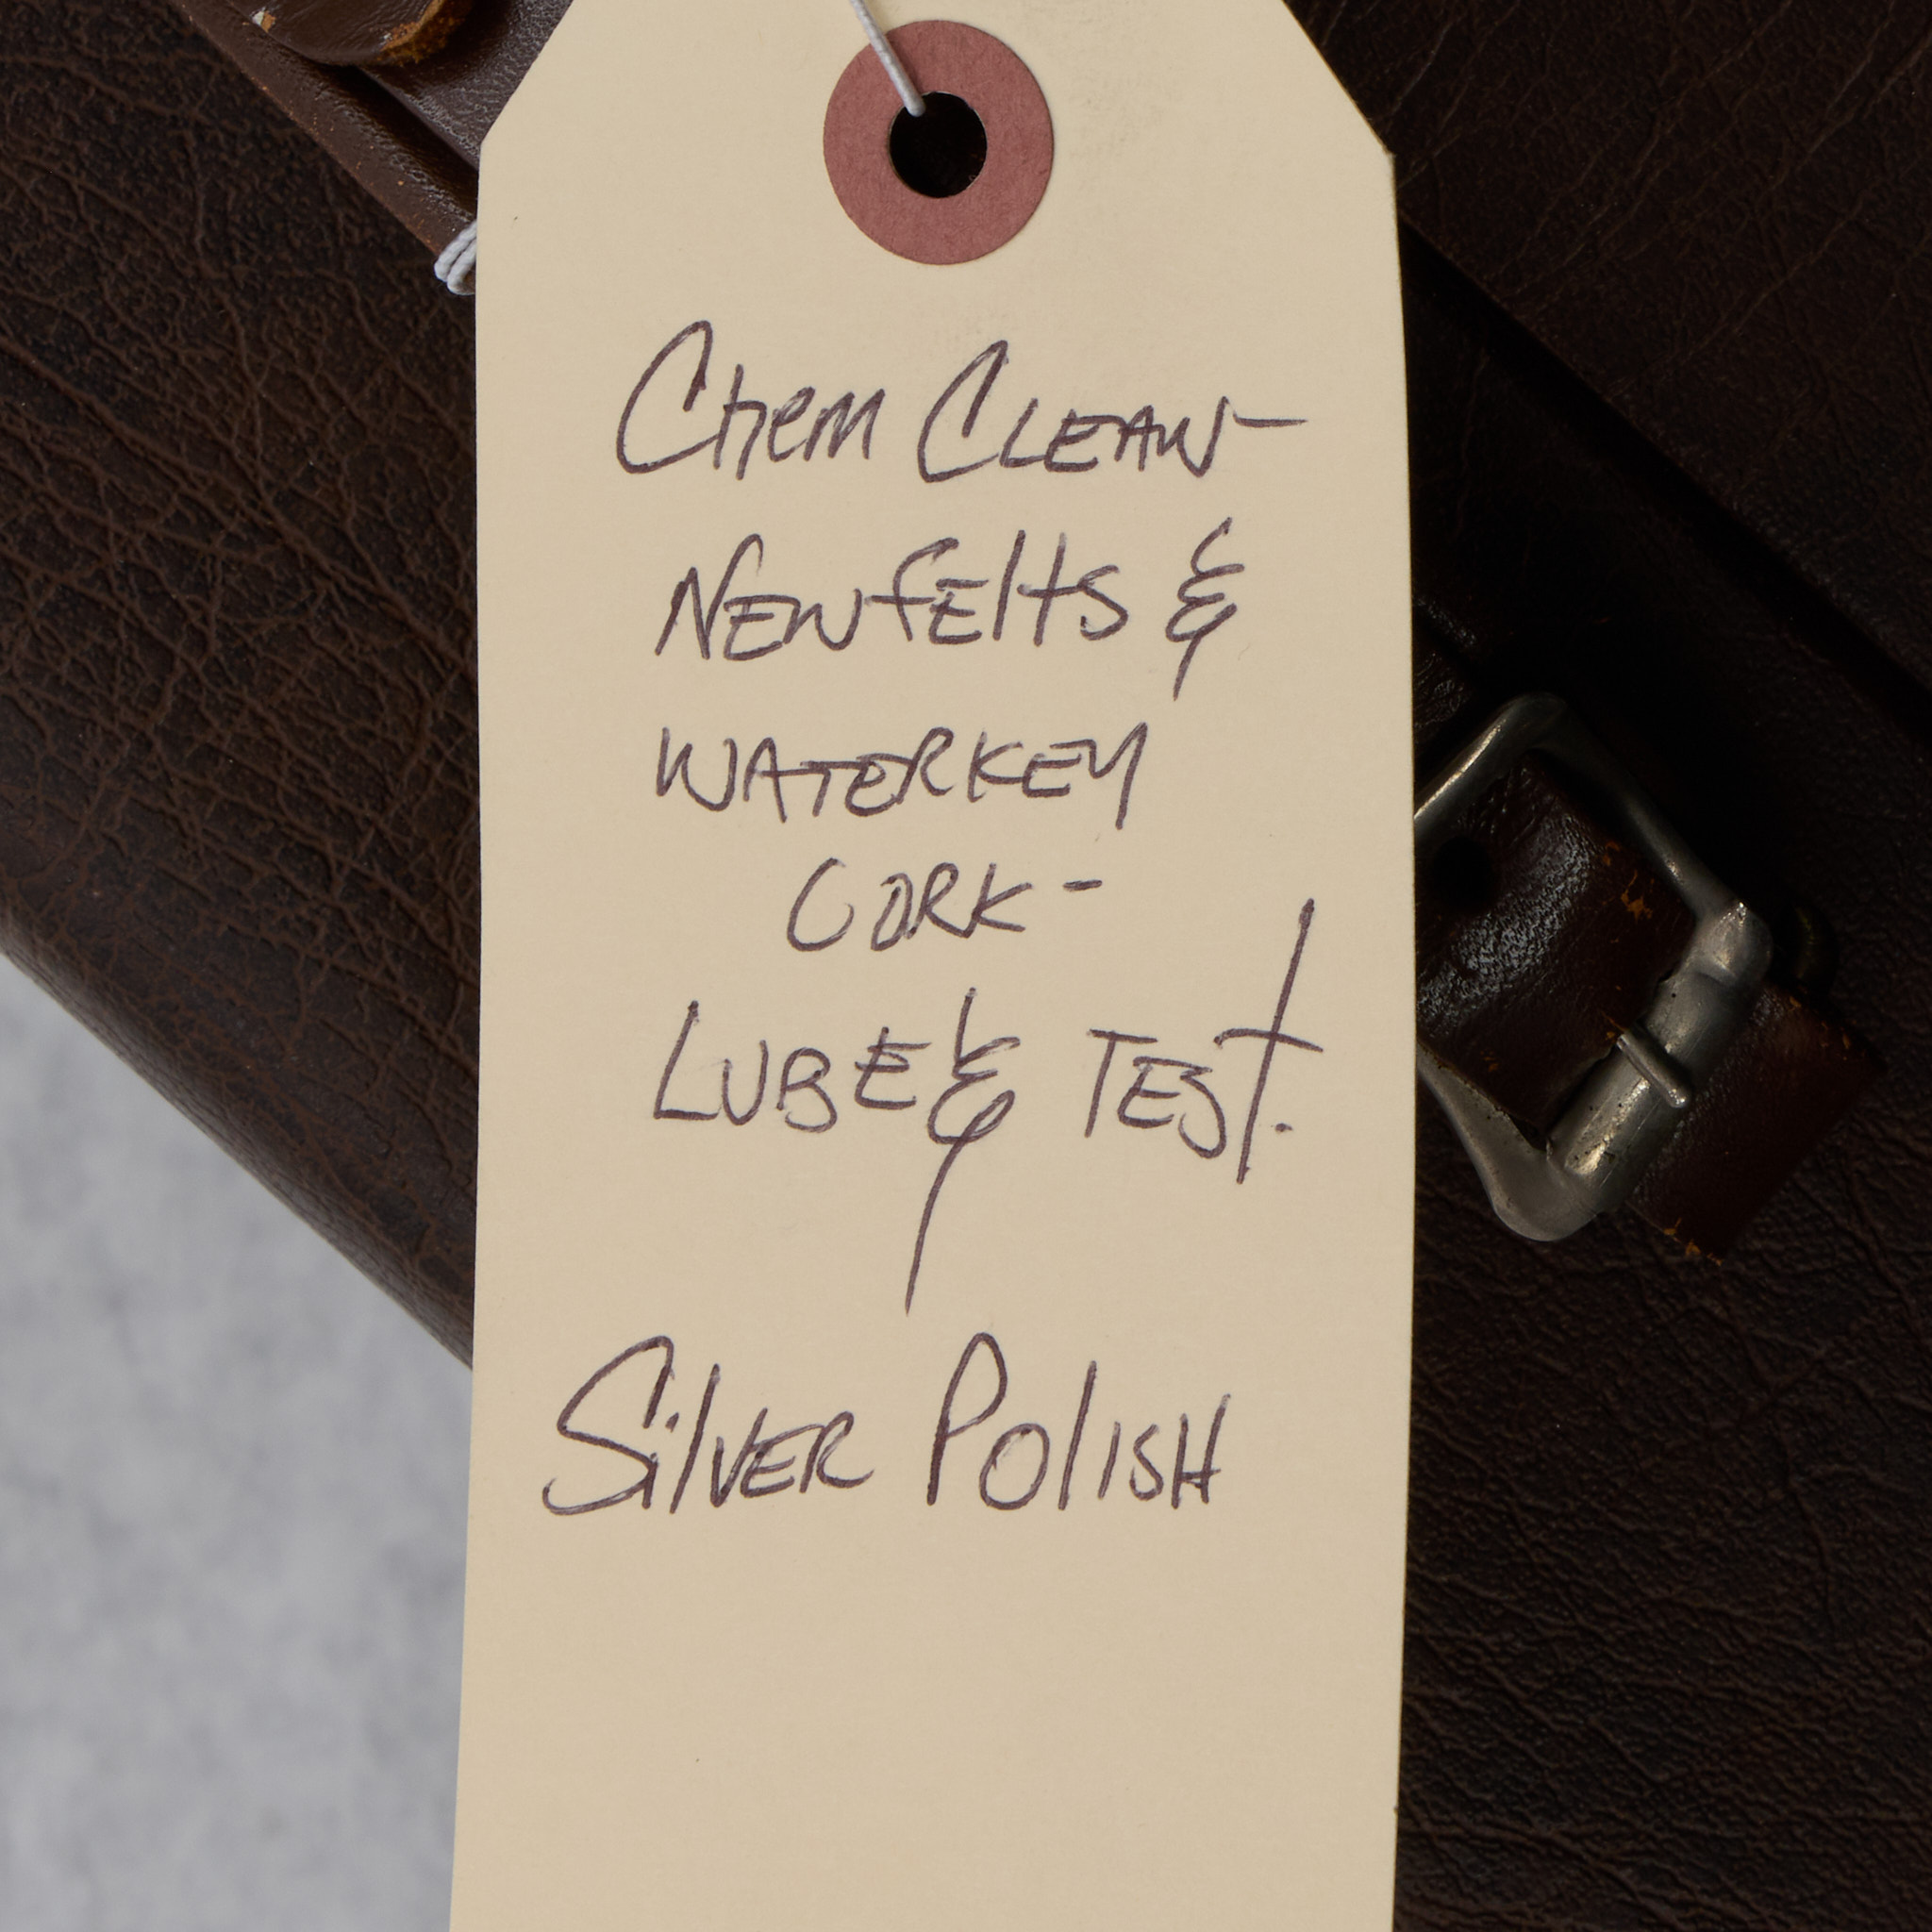 Chem CLEAN-
NEW fElts &
WATERKEY
CORK -
LUBE & TEST.
SilVER POlISH